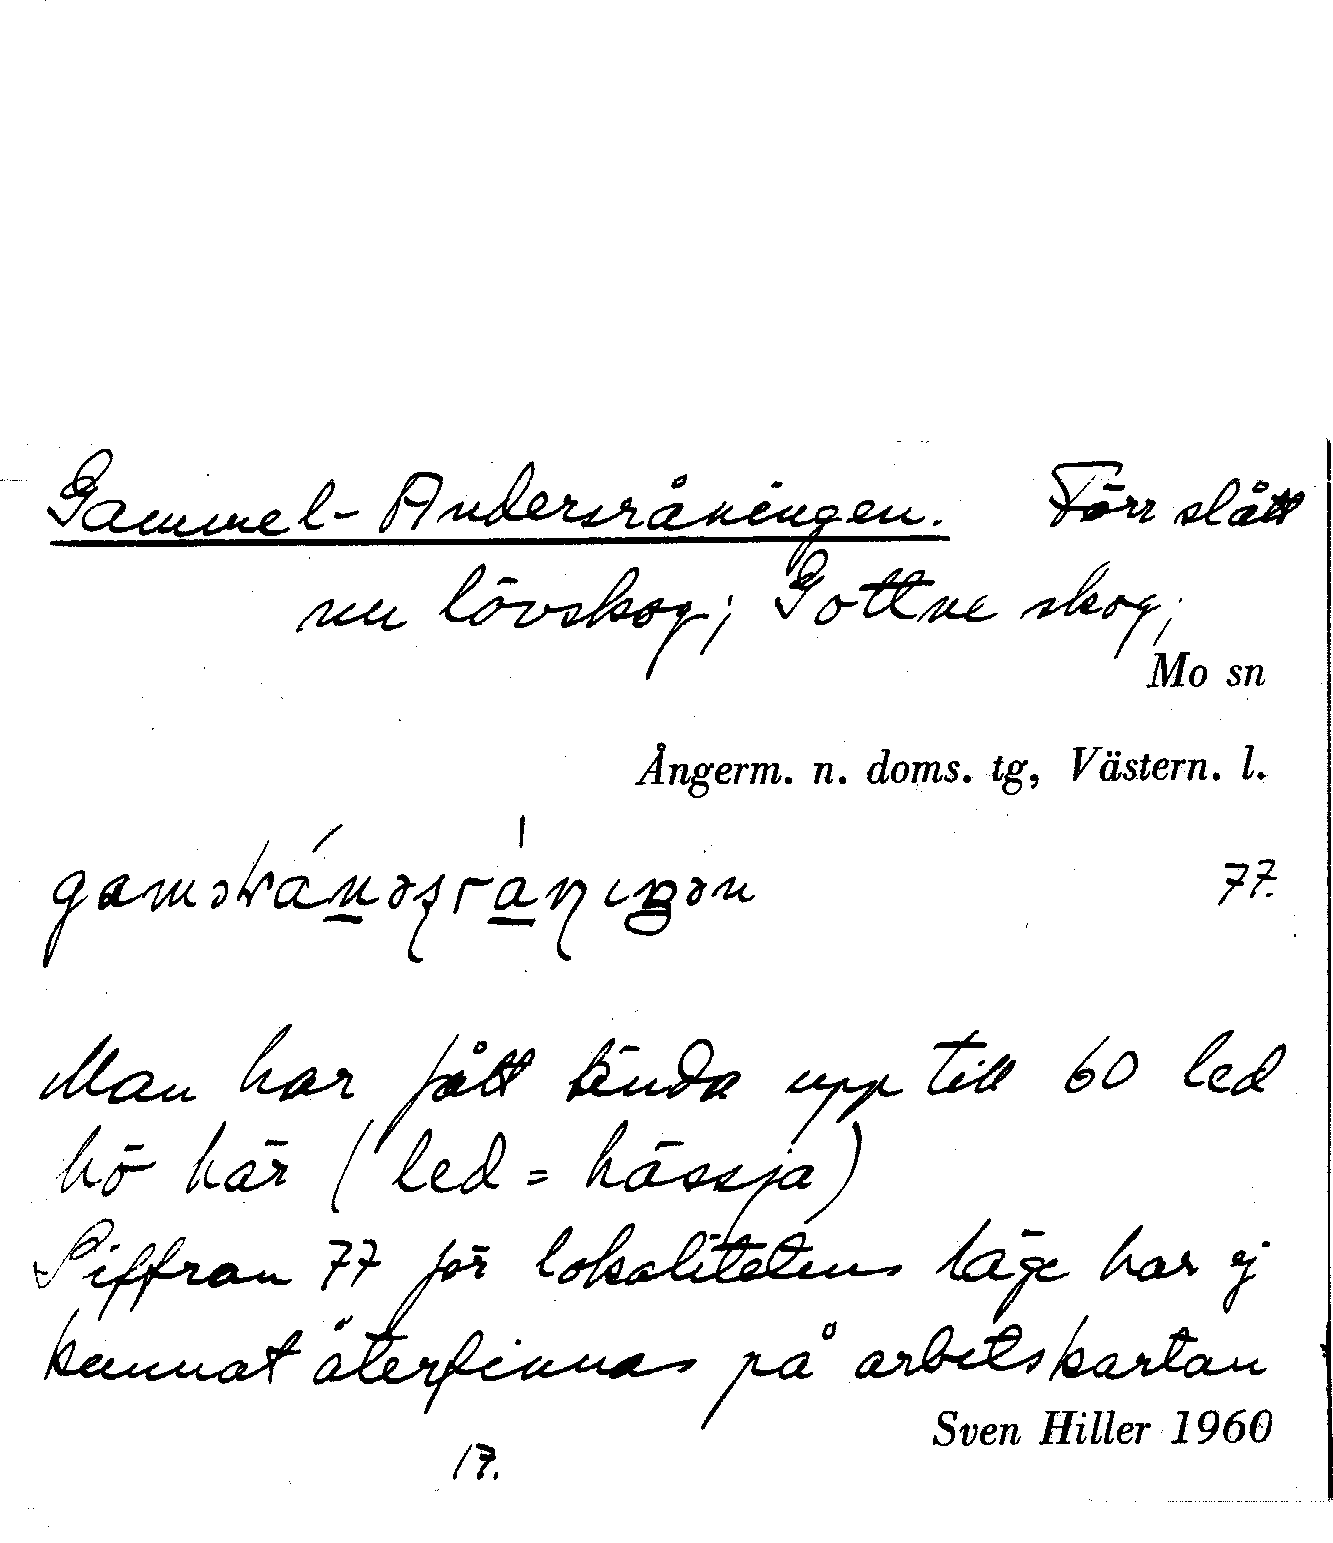 Gammel-Andersråningen. Förr slått
nu lövskog; Gottne skog,
Mo sn
Ångerm. n. doms. tg, Västern. l.
77.
Man har fått tända upp till 60 led
hö här (led = hässja)
Siffran 77 för lokalitetens läge har ej
kunnat återfinnas på arbetskartan
Sven Hiller 1960
17.